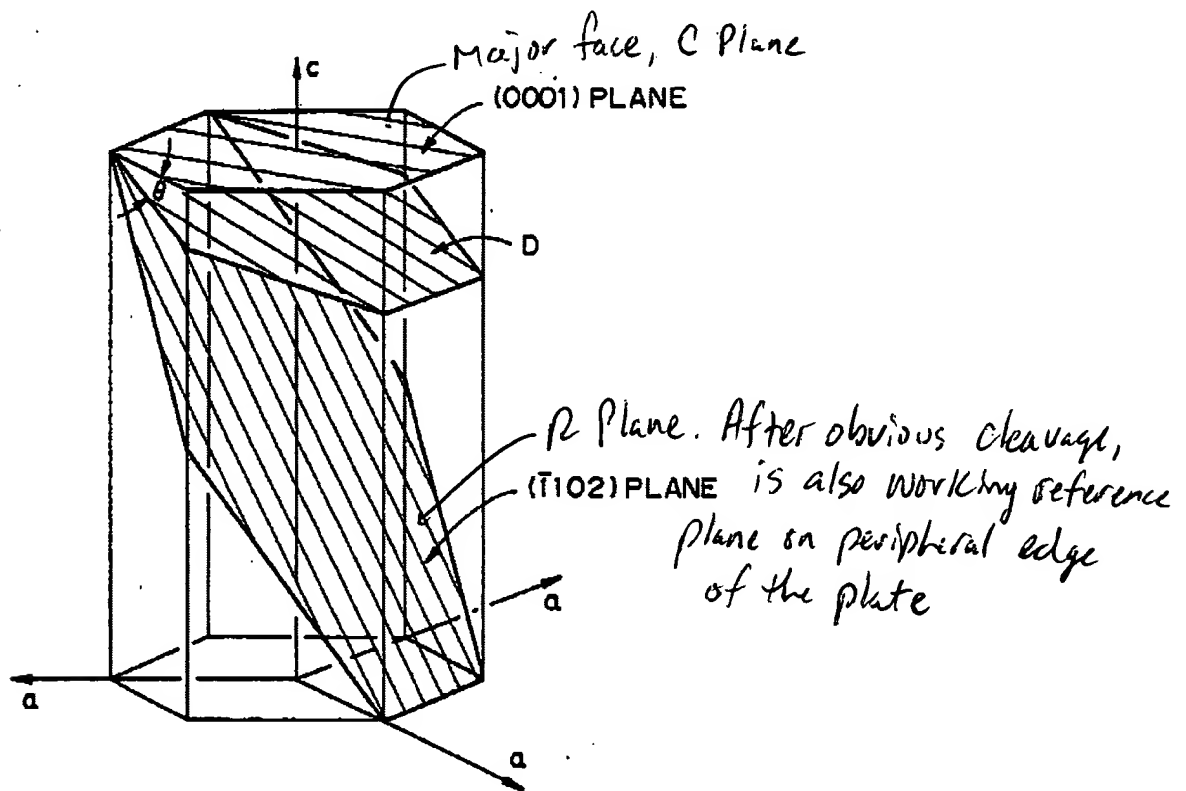 Major face, C Plane
c
(0001) PLANE
θ
D
R Plane. After obvious cleavage,
(1̄102) PLANE is also working reference
plane on peripheral edge
of the plate
a
a
a